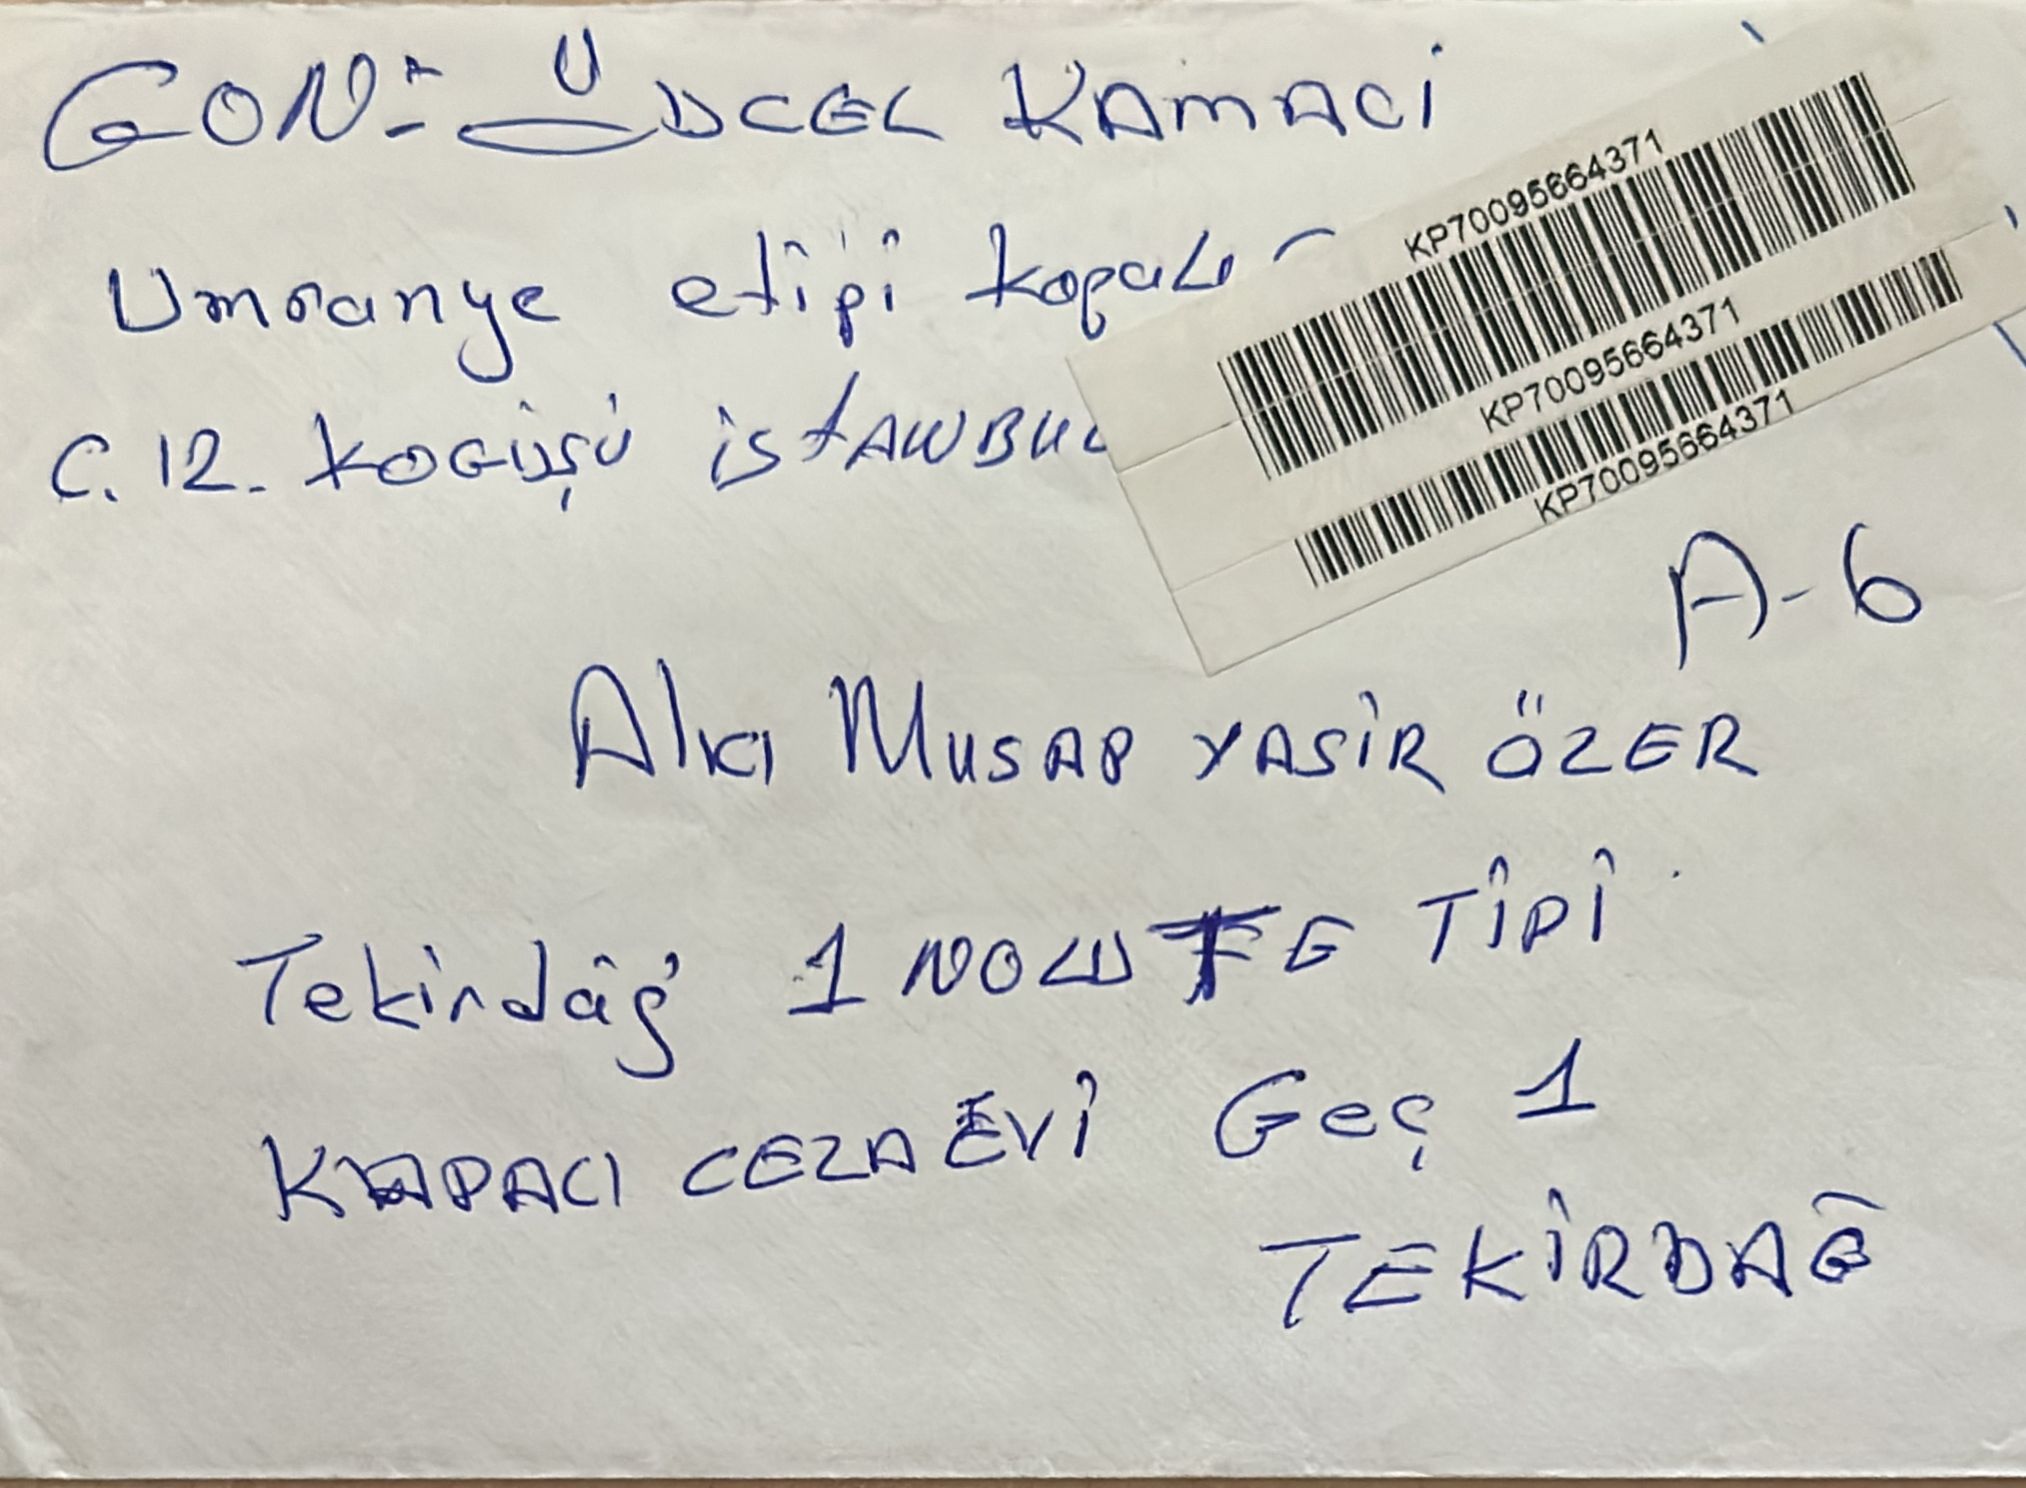 GÖN:- ÜDCEL KAMACİ
Umranye etipi kopalı
C. 12. KOGÜŞÜ İSTANBUL
KP70095664371
KP70095664371
KP70095664371
A-6
Alıcı MUSAP YASİR ÖZER
Tekirdâğ 1 NOLU F TİPİ
KAPACI CEZA EVİ Geç 1
TEKİRDAĞ